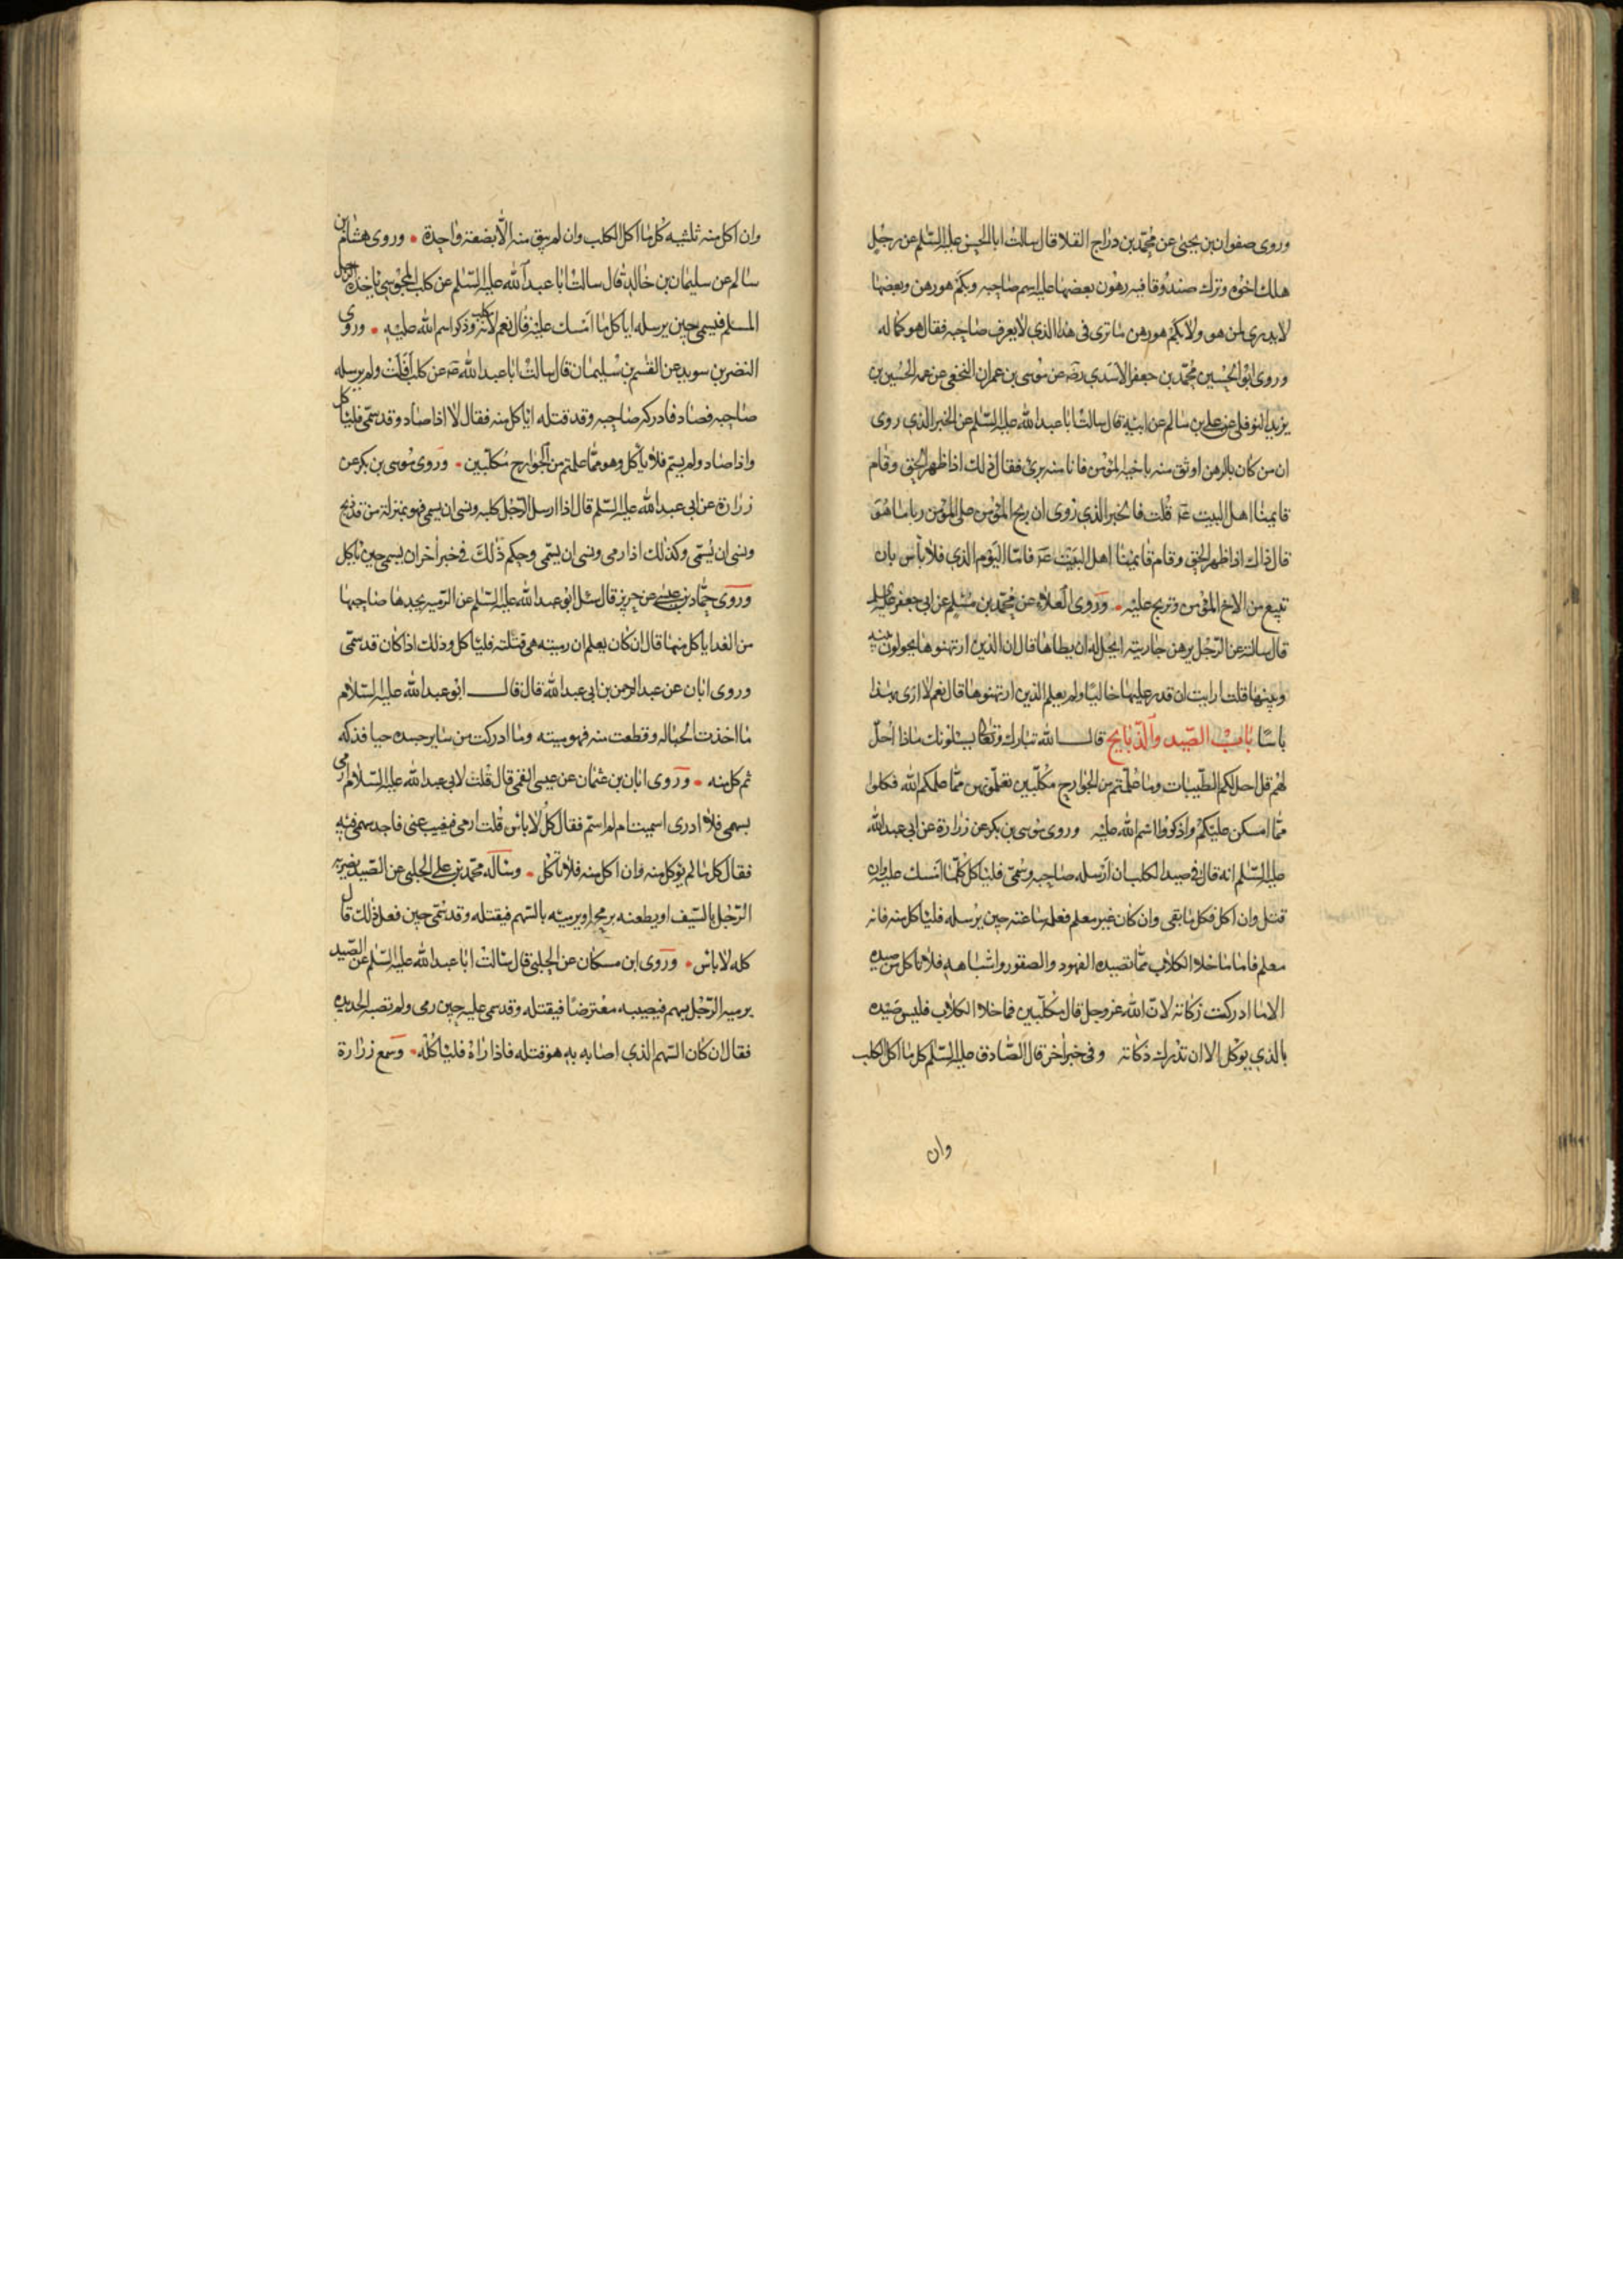 وروى صفوان بن يحيى عن محمد بن دراج القلا قال سالت ابا الحسن عليه السلم عن رجل
هلك اخوه وترك صندوقا فيه رهون بعضها عليه اسم صاحبه وبكم هو رهن وبعضها
لا يدرى لمن هو ولا بكم هو رهن ما ترى فى هذا الذي لا يعرف صاحبه فقال هو كما له
وروى ابو الحسين محمد بن جعفر الاسدي رضه عن موسى بن عمران النخعى عن عمه الحسين بن
يزيد النوفلى عن على بن سالم عن ابيه قال سالت ابا عبد الله عليه السلم عن الخبر الذي روى
ان من كان بالرهن اوثق منه باخيه المؤمن فانا منه برئ فقال ذلك اذا ظهر الحق وقام
قايمنا اهل البيت عم قلت فالخبر الذي روى ان ربح المؤمن على المؤمن ربا ما هو
قال ذاك اذا ظهر الحق وقام قايمنا اهل البيت عم فاما اليوم الذي فلا باس بان
تبيع من الاخ المؤمن وتربح عليه وروى العلاء عن محمد بن مسلم عن ابى جعفر عليه السلم
قال سالته عن الرجل يرهن جاريته ايحل له ان يطاها قال ان الذين ارتهنوها يحولون بينه
وبينها قلت ارايت ان قدر عليها خاليا ولم يعلم الذين ارتهنوها قال نعم لا ارى بهذا
باسا باب الصيد والذبايح قال الله تبارك وتعالى يسئلونك ماذا احل
لهم قل احل لكم الطيبات وما علمتم من الجوارح مكلبين تعلمونهن مما علمكم الله فكلوا
مما امسكن عليكم واذكروا اسم الله عليه وروى موسى بن بكر عن زرارة عن ابى عبد الله
عليه السلم انه قال فى صيد الكلب ان ارسله صاحبه وسمى فلياكل كلما امسك عليه وان
قتل وان اكل فكل ما بقى وان كان غير معلم فعلمه ساعته حين يرسله فلياكل منه فانه
معلم فاما ما خلا الكلاب مما تصيده الفهود والصقور واشباهه فلا تاكل من صيده
الا ما ادركت زكاته لان الله عز وجل قال مكلبين فما خلا الكلاب فليس صيده
بالذي يوكل الا ان تدرك ذكاته وفى خبر اخر قال الصادق عليه السلم كل ما اكل الكلب
وان
وان اكل منه ثلثيه كل ما اكل الكلب وان لم يبق منه الا بضعة واحدة وروى هشام بن
سالم عن سليمان بن خالد قال سالت ابا عبد الله عليه السلم عن كلب المجوسي ياخذه الرجل
المسلم فيسمى حين يرسله اياكل مما امسك عليه فقال نعم لانه مكلب وذكر اسم الله عليه وروى
النضر بن سويد عن القسم بن سليمان قال سالت ابا عبد الله عم عن كلب افلت ولم يرسله
صاحبه فصاد فادركه صاحبه وقد قتله اياكل منه فقال لا اذا صاد وقد سمى فلياكل
واذا صاد ولم يسم فلا ياكل وهو مما علمتم من الجوارح مكلبين وروى موسى بن بكر عن
زرارة عن ابى عبد الله عليه السلم قال اذا ارسل الرجل كلبه ونسى ان يسمى فهو بمنزلة من قد ذبح
ونسى ان يسمى وكذلك اذا رمى ونسى ان يسمى وحكم ذلك فى خبر اخر ان يسمى حين ياكل
وروى حماد بن عيسى عن حريز قال سئل ابو عبد الله عليه السلم عن الرمية يجدها صاحبها
من الغد اياكل منها قال ان كان يعلم ان رميته هى قتلته فلياكل وذلك اذا كان قد سمى
وروى ابان عن عبد الرحمن بن ابى عبد الله قال قال ابو عبد الله عليه السلام
ما اخذت الحباله وقطعت منه فهو ميته وما ادركت من ساير جسده حيا فذكه
ثم كل منه وروى ابان بن عثمان عن عيسى القمى قال قلت لابى عبد الله عليه السلام ارمى
بسهمى فلا ادرى اسميت ام لم اسم فقال كل لا باس قلت ارمى فيغيب عنى فاجد سهمى فيه
فقال كل ما لم يوكل منه وان اكل منه فلا تاكل وساله محمد بن على الحلبى عن الصيد يضربه
الرجل بالسيف او يطعنه برمح او يرميه بالسهم فيقتله وقد سمى حين فعل ذلك قال
كله لا باس وروى ابن مسكان عن الحلبى قال سالت ابا عبد الله عليه السلم عن الصيد
يرميه الرجل بسهم فيصيبه معترضا فيقتله وقد سمى عليه حين رمى ولم تصبه الحديده
فقال ان كان السهم الذي اصابه به هو قتله فاذا راه فلياكله وسمع زرارة